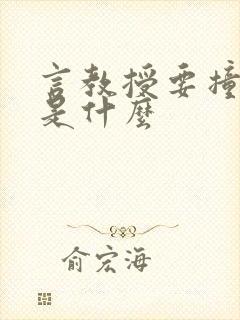 言教授要撞
是什麼
俞宏海